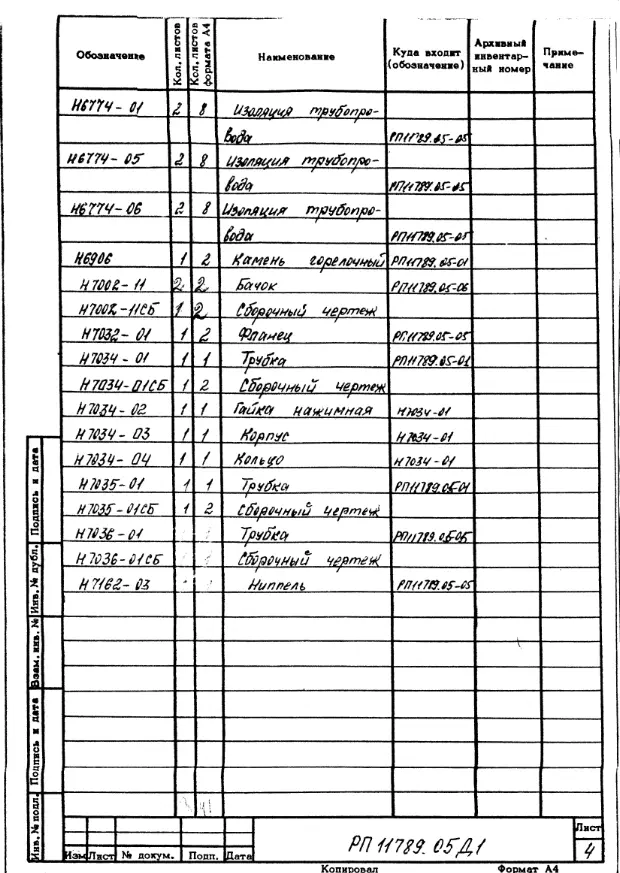 Обозначение | Кол. листов | Кол. листов формата А4 | Наименование | Куда входит (обозначение) | Архивный инвентарный номер | Примечание
Н6774-01 2 8 Изоляция трубопро-
вода РП11789.05-05
Н6774-05 2 8 Изоляция трубопро-
вода РП11789.05-05
Н6774-06 2 8 Изоляция трубопро-
вода РП11789.05-05
Н6906 1 2 Камень горелочный РП11789.05-01
Н7002-11 2 2 Бачок РП11789.05-06
Н7002-11СБ 1 2 Сборочный чертеж
Н7032-01 1 2 Фланец РП11789.05-05
Н7034-01 1 1 Трубка РП11789.05-01
Н7034-01СБ 1 2 Сборочный чертеж
Н7034-02 1 1 Гайка нажимная Н7034-01
Н7034-03 1 1 Корпус Н7034-01
Н7034-04 1 1 Кольцо Н7034-01
Н7035-01 1 1 Трубка РП11789.05-01
Н7035-01СБ 1 2 Сборочный чертеж
Н7036-01 Трубка
Н7036-01СБ Сборочный чертеж
Н7162-03 Ниппель РП11789.05-05
Подпись и дата
Инв. № дубл.
Взам. инв. №
Подпись и дата
Инв. № подл.
Изм Лист № докум. Подп. Дата
РП 11789.05Д1
Лист
4
Копировал Формат А4